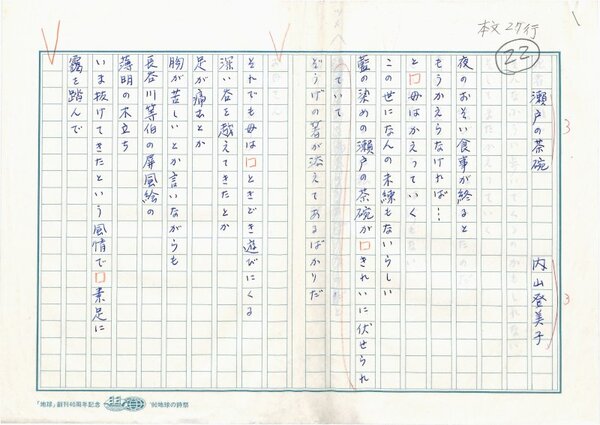 本文27行
22
瀬戸の茶碗
3
内山登美子
3
夜のおそい食事が終ると
もうかえらなければ…
と□母はかえっていく
この世になんの未練もないらしい
藍の染めの瀬戸の茶碗が□きれいに伏せられ
ていて
ぞうげの箸が添えてあるばかりだ
それでも母は□ときどき遊びにくる
深い谷を越えてきたとか
足が痛むとか
胸が苦しいとか言いながらも
長谷川等伯の屏風絵の
薄明の木立ち
いま抜けてきたという風情で□素足に
露を踏んで
「地球」創刊40周年記念
'90地球の詩祭